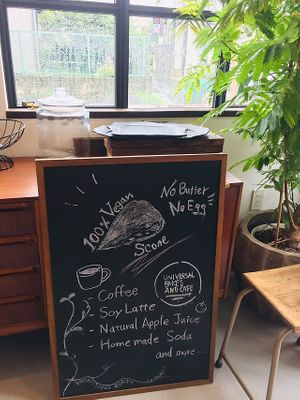 100% Vegan
Scone
No Butter
No Egg
UNIVERSAL
BAKES
AND CAFE
Coffee
- Soy Latte
- Natural Apple Juice
- Homemade Soda
and more...